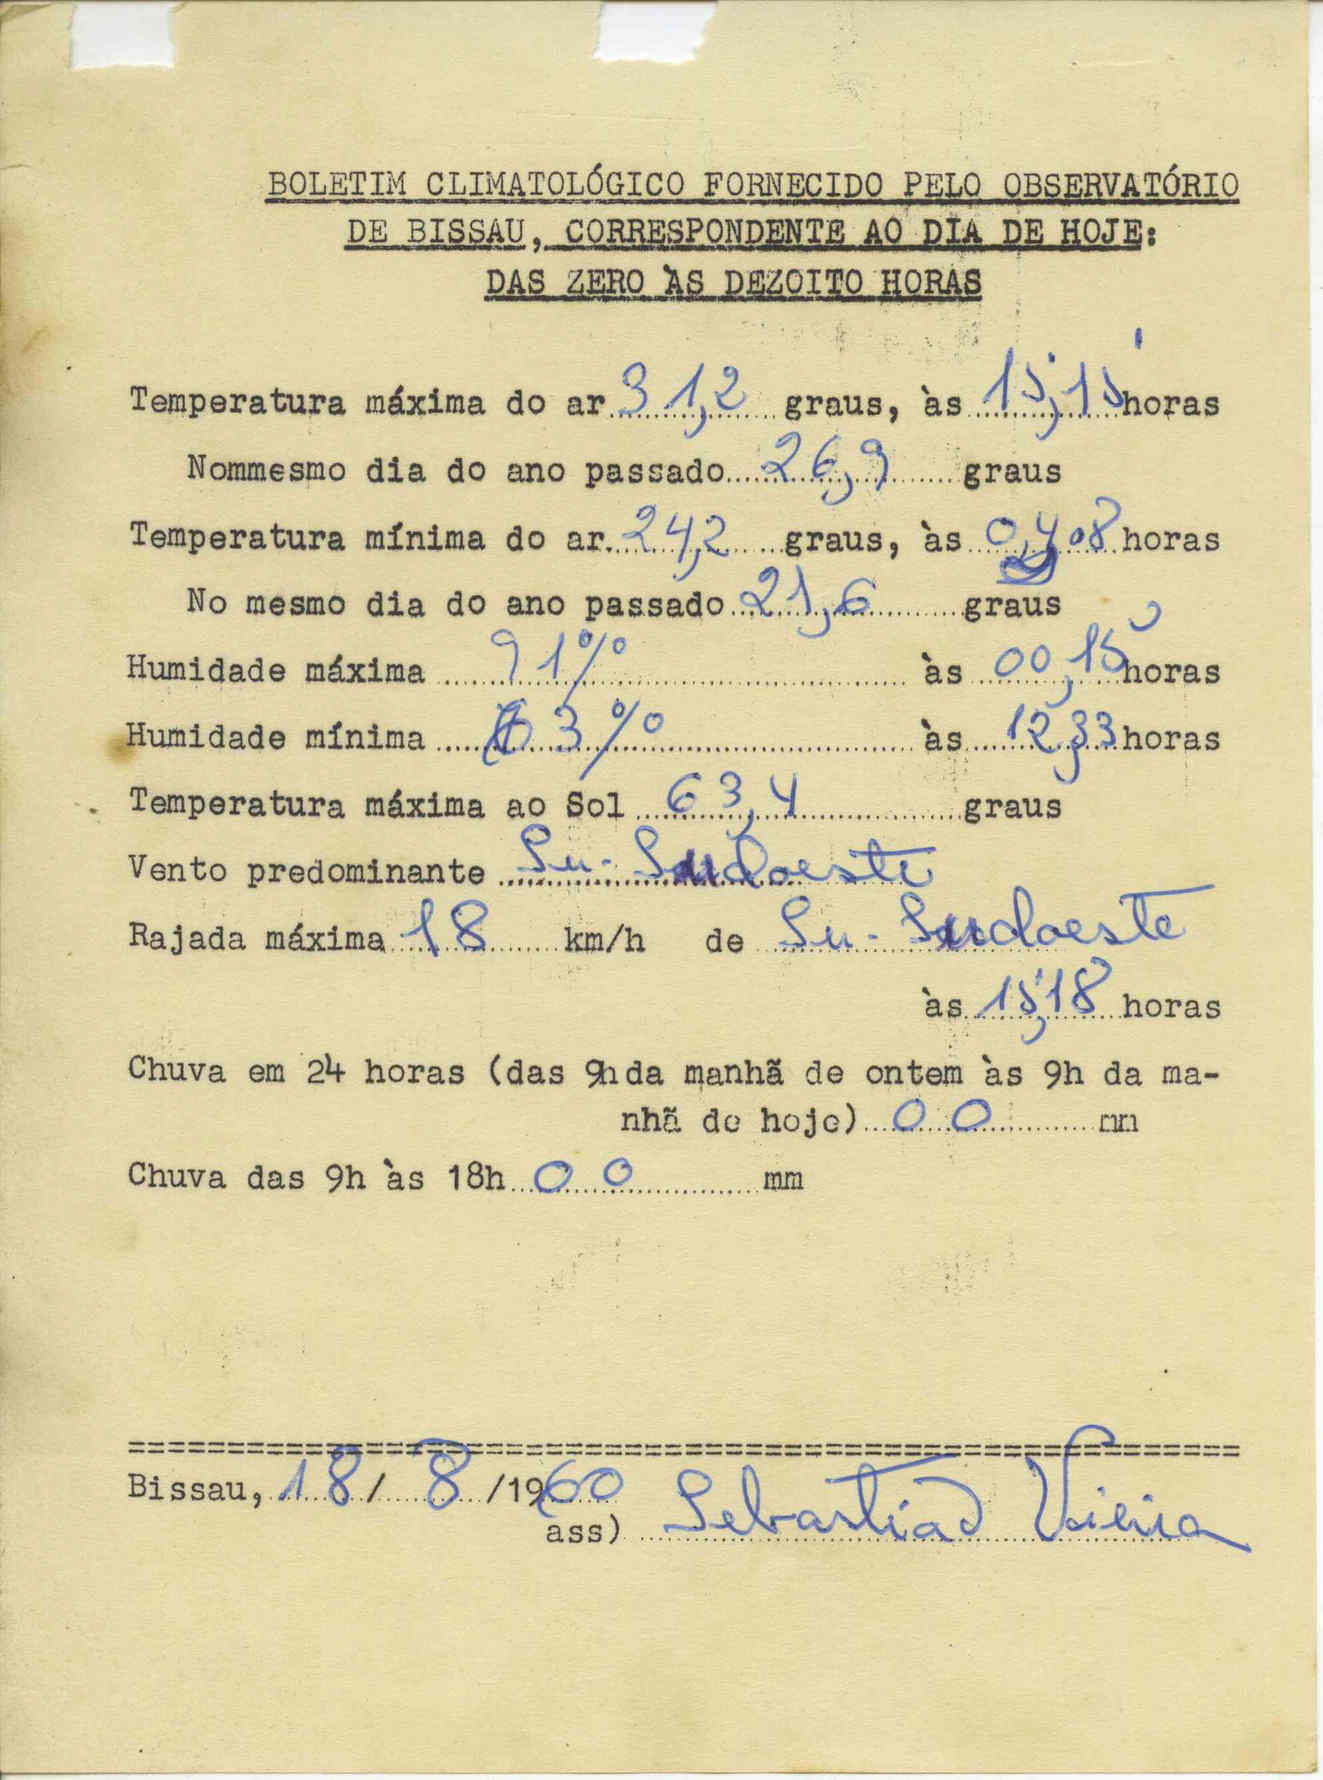 BOLETIM CLIMATOLÓGICO FORNECIDO PELO OBSERVATÓRIO
DE BISSAU, CORRESPONDENTE AO DIA DE HOJE:
DAS ZERO ÀS DEZOITO HORAS
Temperatura máxima do ar 31,2 graus, às 15,15 horas
Nommesmo dia do ano passado 26,9 graus
Temperatura mínima do ar 24,2 graus, às horas
No mesmo dia do ano passado 21,6 graus
Humidade máxima 91% às 00,15 horas
Humidade mínima 63% às 12,33 horas
Temperatura máxima ao Sol 63,4 graus
Vento predominante Su-Sudoeste
Rajada máxima 18 km/h de Su-Sudoeste
às 15,18 horas
Chuva em 24 horas (das 9h da manhã de ontem às 9h da ma-
nhã de hoje) 00 mm
Chuva das 9h às 18h 00 mm
==========================================================
Bissau, 18/ 8 /1960
ass) Sebastião Vieira